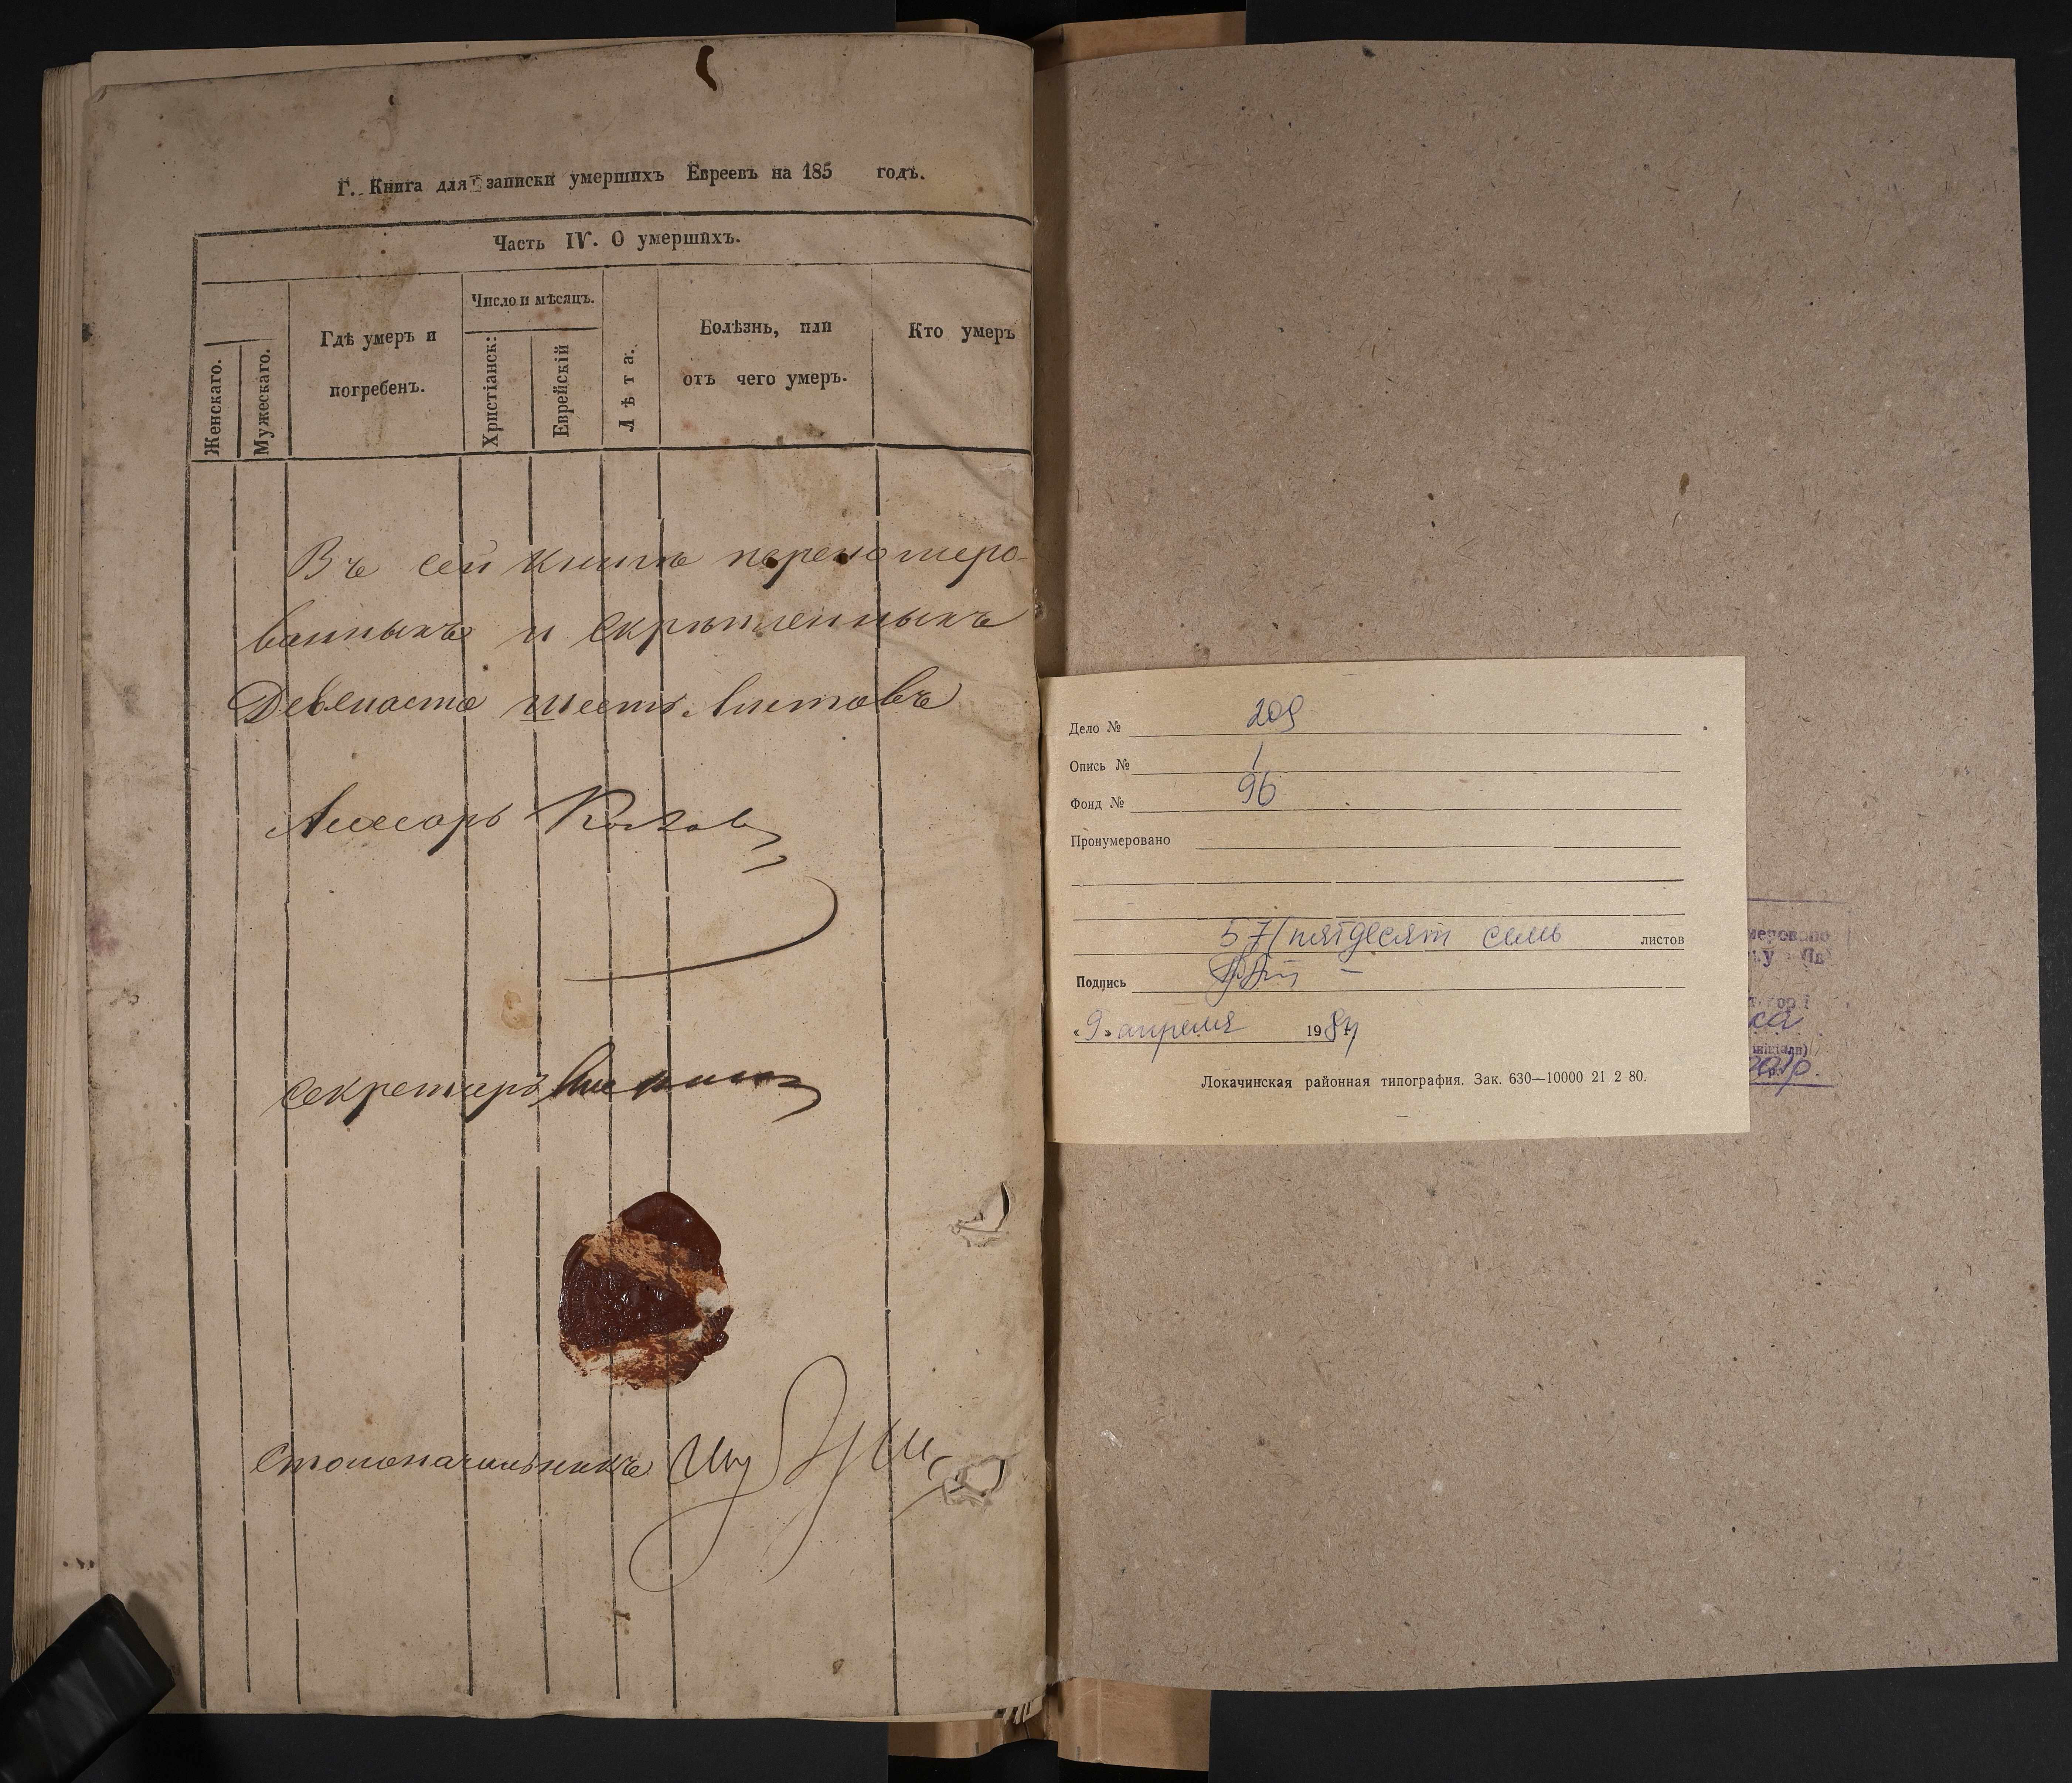 Г. Книга для записки умершихъ Евреевъ на 185 годъ.
Часть IV. О умершихъ.
Женскаго.
Мужескаго.
Гдѣ умеръ и
погребенъ.
Число и мѣсяцъ.
Христіанск:
Еврейскій
Лѣта.
Болѣзнь, или
отъ чего умеръ.
Кто умеръ
Въ сей книгѣ перенумеро-
ванныхъ и скрѣпленныхъ
Двѣнаста шесть листовъ
Ассесоръ
Секретарь
Столоначальникъ
Дело № 209
Опись № 1
Фонд № 96
Пронумеровано
57 (пятдесят семь листов
Подпись
«9» апреля 1984
Локачинская районная типография. Зак. 630—10000 21 2 80.